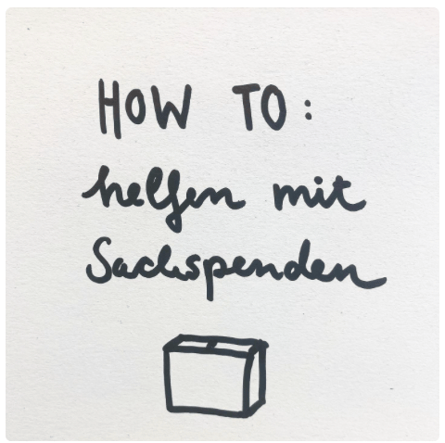 HOW TO:
helfen mit
Sachspenden